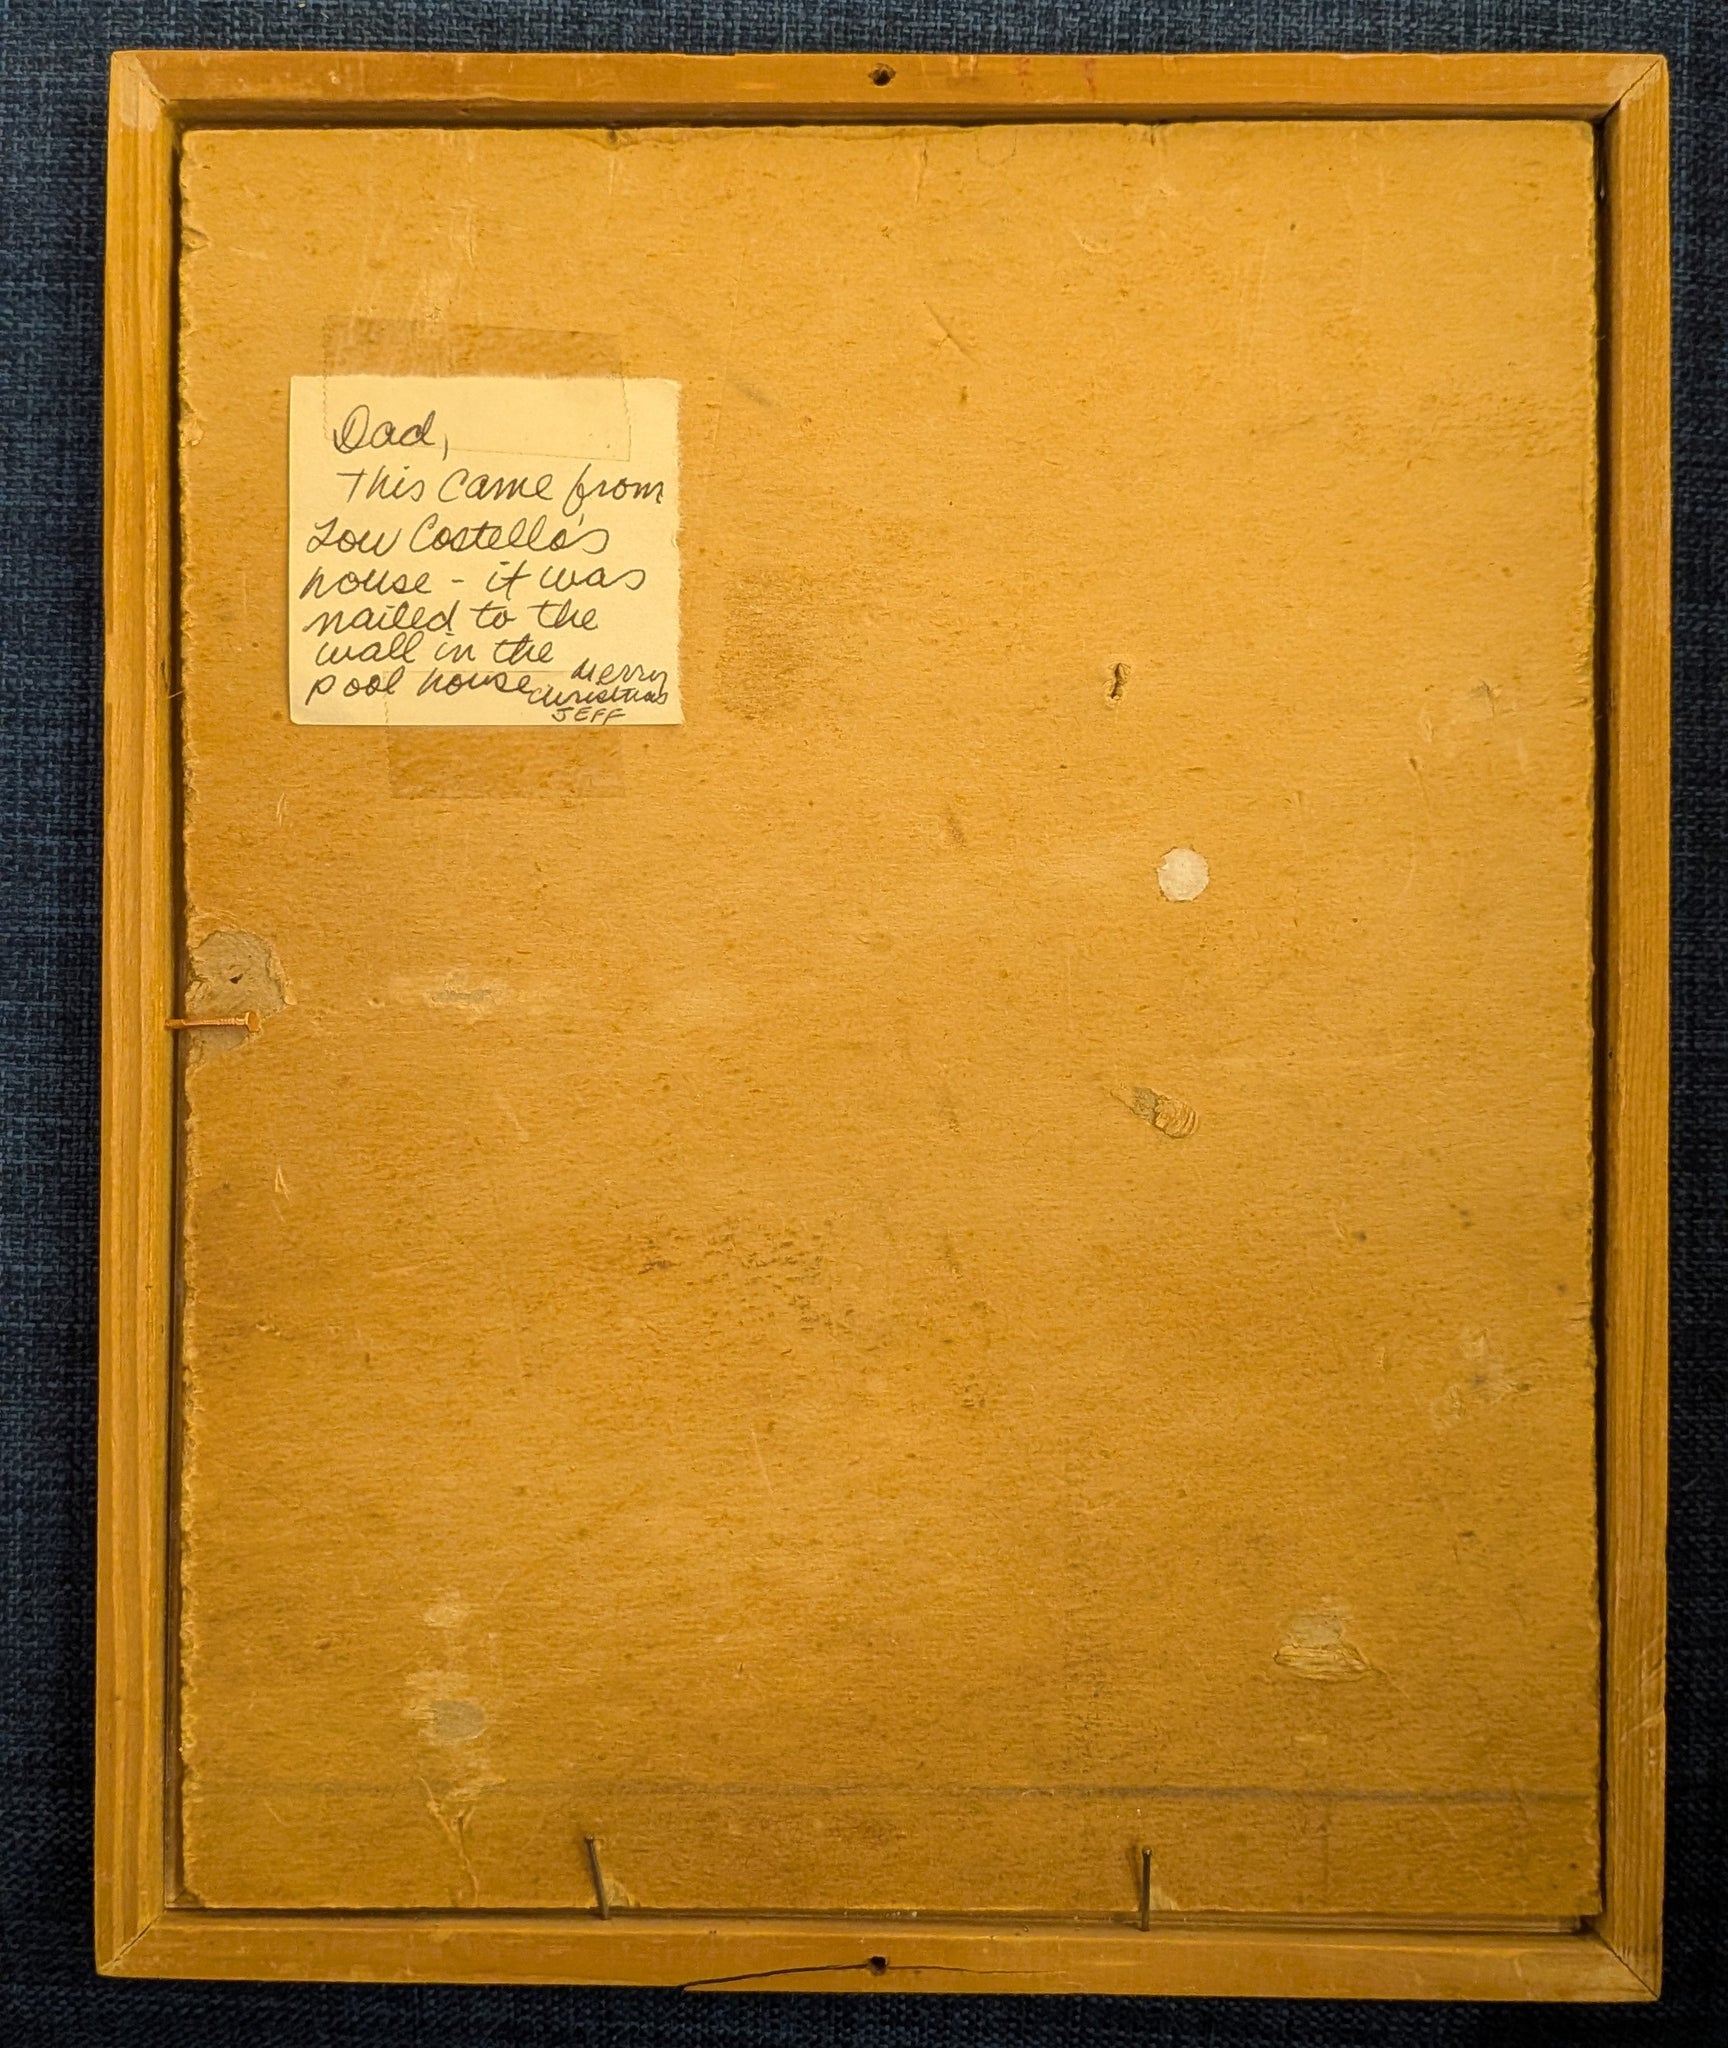 Dad,
This came from
Lou Costello's
house - it was
nailed to the
wall in the
pool house Merry
Christmas
JEFF